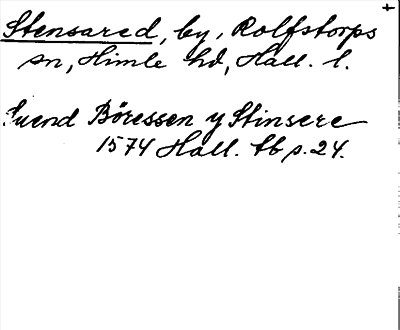 Stensared, by, Rolfstorps
sn, Himle hd, Hall. l.
Suend Böressen y Stinsere
1574 Hall. tb p. 24.